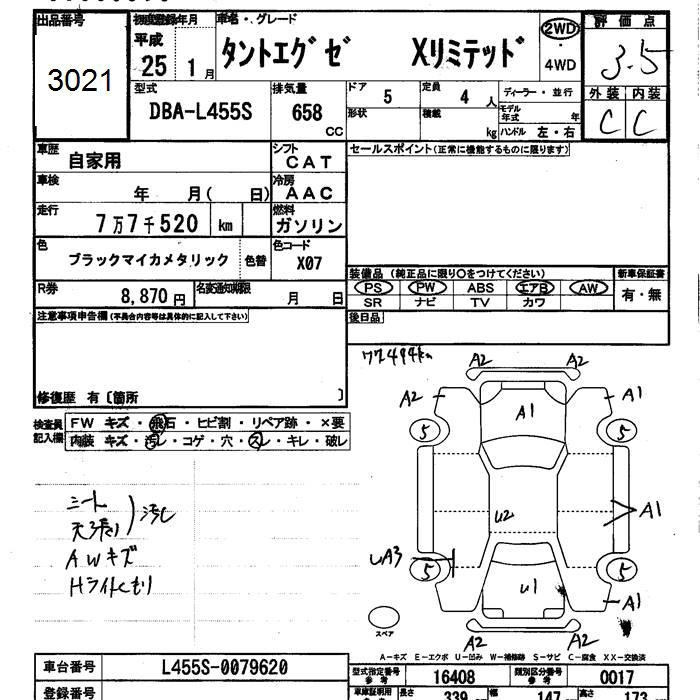 出品番号 初度登録年月 車名・グレード 2WD 評価点
3021 平成 25 1月 タントエグゼ Xリミテッド ・ 4WD 3.5
型式 排気量 ドア 5 定員 4 人 ディーラー・並行 外装 内装
DBA-L455S 658 CC 形状 積載 kg モデル年式 年 C C
ハンドル 左・右
車歴 自家用 シフト CAT セールスポイント(正常に機能するものに限ります)
車検 年 月( 日) 冷房 AAC
走行 7万7千520 km 燃料 ガソリン
色 ブラックマイカメタリック 色替 色コード X07
装備品 (純正品に限り○をつけてください) 新車保証書
R券 8,870円 名変通知期限 月 日 PS PW ABS エアB AW 有・無
SR ナビ TV カワ
注意事項申告欄(不具合内容等は具体的に記入して下さい) 後日品
77494km
修復歴 有〔箇所 〕
検査員記入欄 FW キズ・飛石・ヒビ割・リペア跡・×要
内装 キズ・汚レ・コゲ・穴・スレ・キレ・破レ
シート
天張り 汚レ
AWキズ
Hライトくもり
A2 A2
A2 A1 A1
5 5
U2 A1
UA3
5 5
U1 A1
A2 A2
スペア
A-キズ E-エクボ U-凹み W-補修跡 S-サビ C-腐食 XX-交換済
車台番号 L455S-0079620 型式指定番号 参考 16408 類別区分番号 参考 0017
登録番号 車車証明用 長さ 339 幅 147 高さ 173